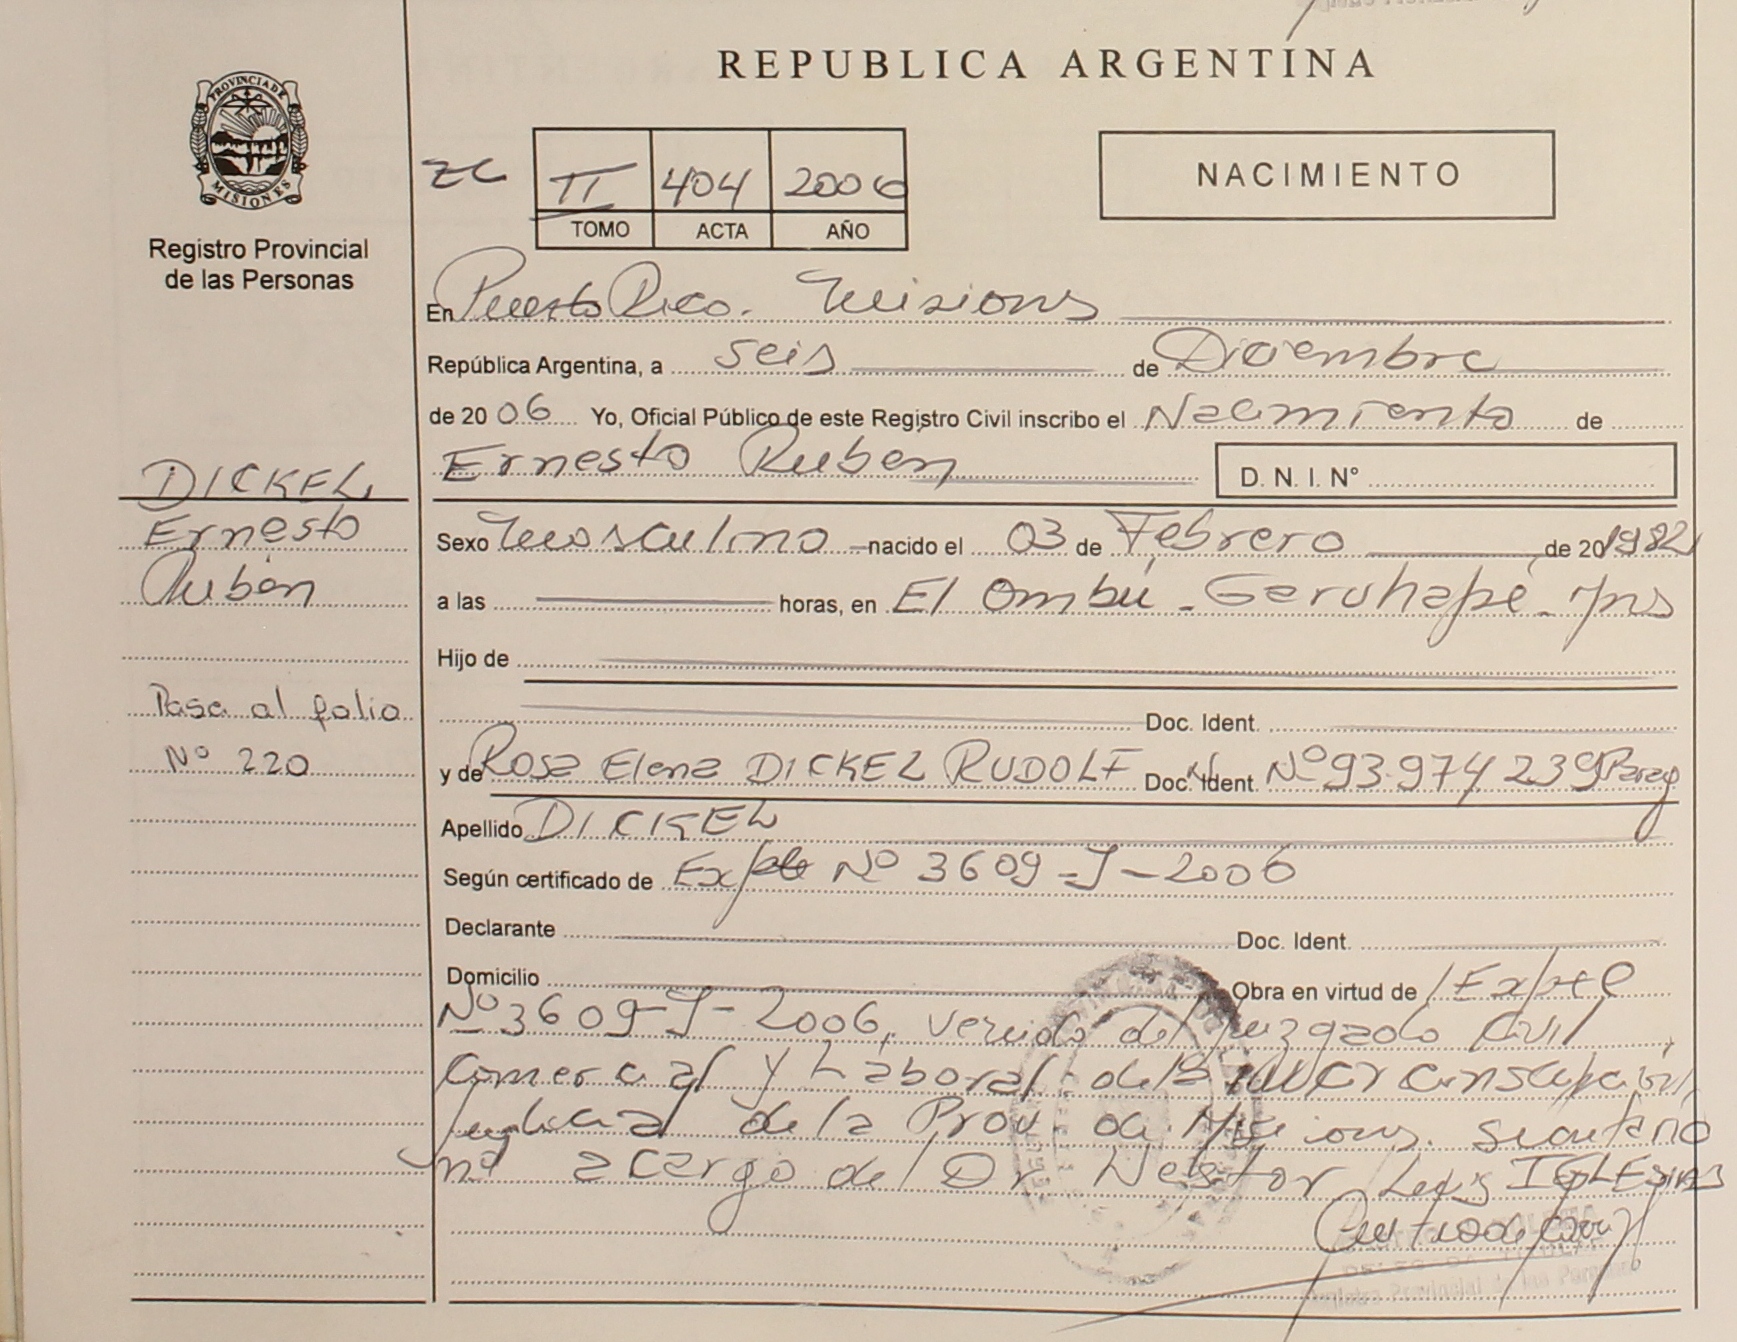 REPUBLICA ARGENTINA
PROVINCIA DE
MISIONES
Registro Provincial
de las Personas
NACIMIENTO
II 404 2006
TOMO ACTA AÑO
En Puerto Rico. Misiones
República Argentina, a seis de Diciembre
de 2006 Yo, Oficial Público de este Registro Civil inscribo el Nacimiento de
Ernesto Ruben D. N. I. Nº
DICKEL
Ernesto
Rubén
Sexo Masculino nacido el 03 de Febrero de 20 1982
a las horas, en El Ombú - Garuhapé - Mns
Hijo de
Pasa al folio
Nº 220
Doc. Ident.
y de Rosa Elena DICKEL RUDOLF Doc. Ident. Nº 93.974.239 Parag
Apellido DICKEL
Según certificado de Expte Nº 3609-J-2006
Declarante Doc. Ident.
Domicilio Obra en virtud de Expte
Nº 3609-J-2006, venido del Juzgado Civil
Comercial y Laboral de la Circunscripción
Judicial de la Prov. de Misiones. Secretario
a cargo de Dr Nestor Luis IGLESIAS